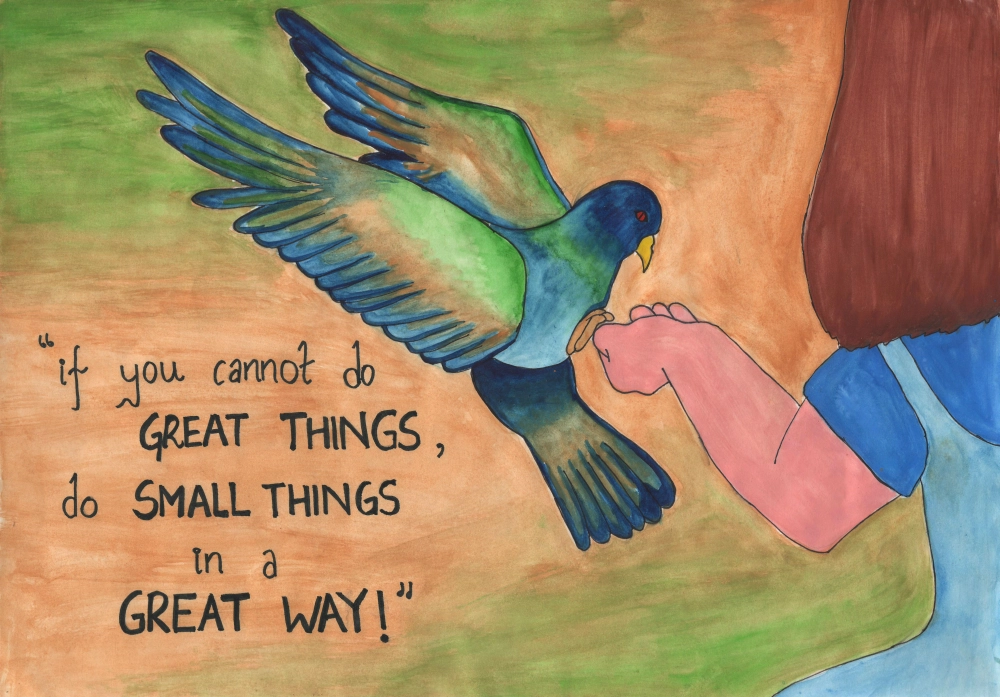 “if you cannot do
GREAT THINGS,
do SMALL THINGS
in a
GREAT WAY!”